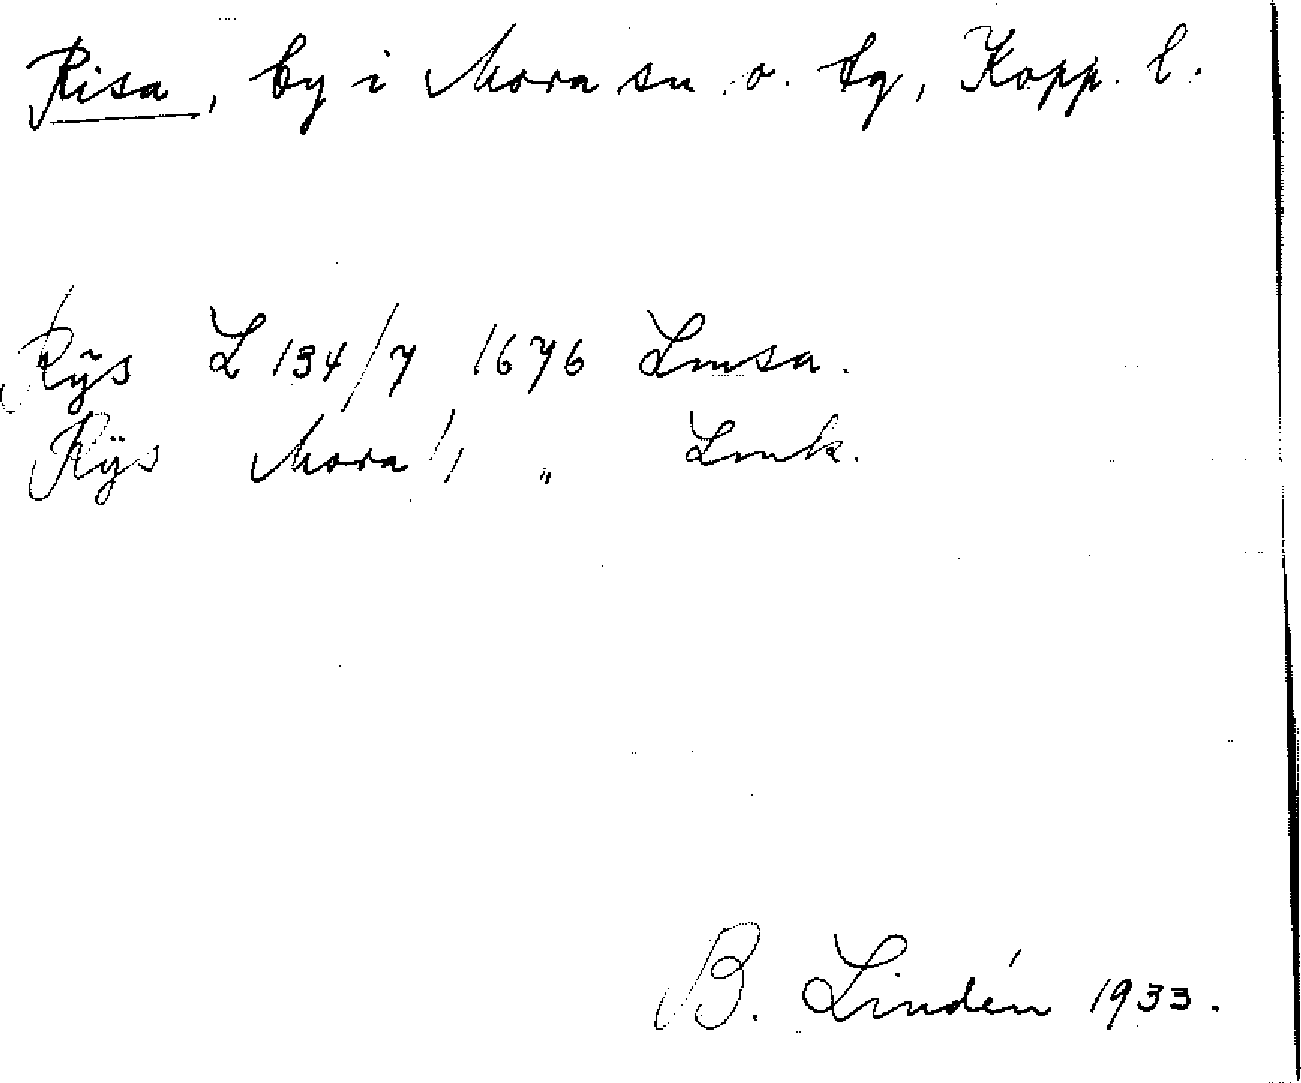 Risa, by i Mora sn o. tg, Kopp. l.
Rÿs L 134/7 1676 Lmsa.
Rÿs Mora 1/1 „ Lmk.
B. Lindén 1933.